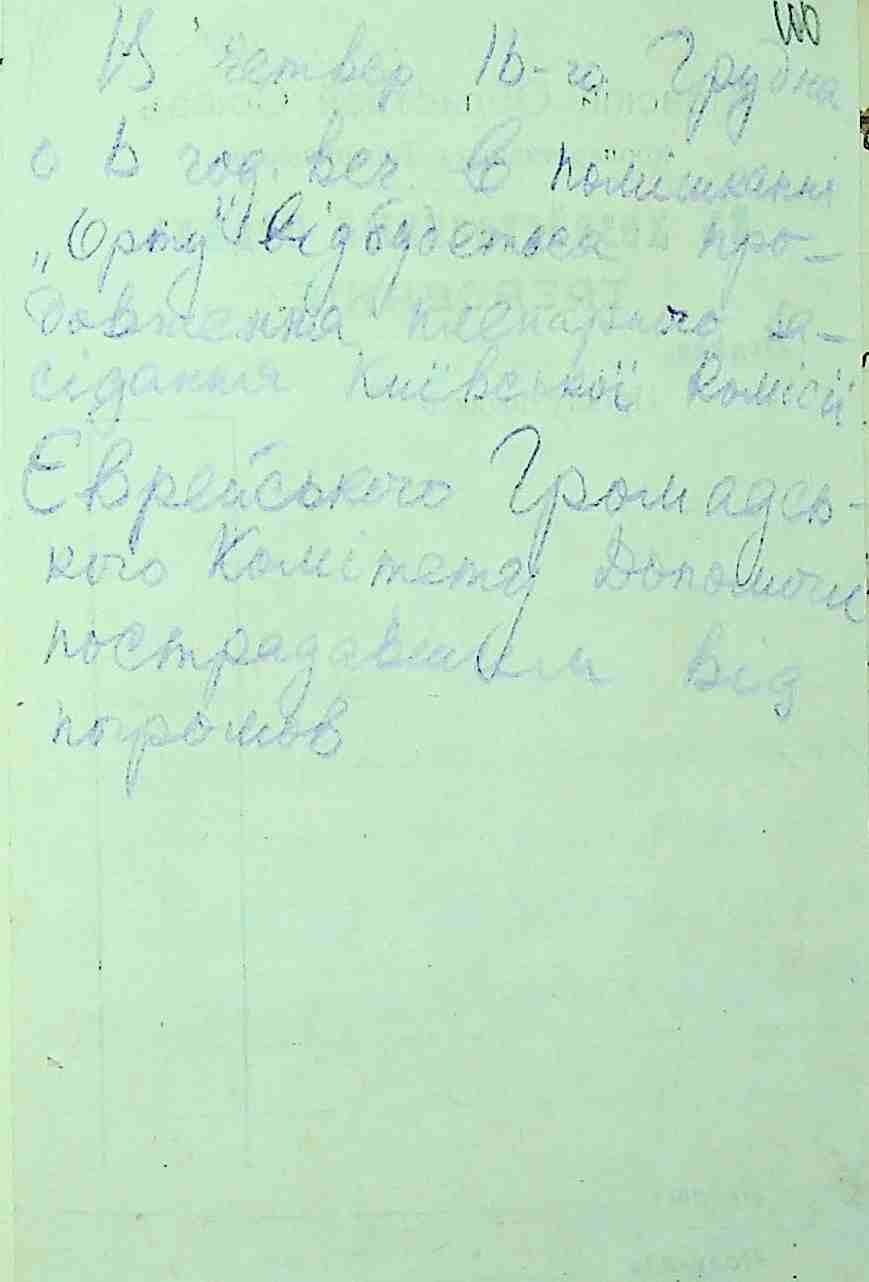 100
У четвер 16-го Грудна
о 6 год. веч. в помішканні
„Орту" відбудеться про-
довження пленарного за-
сідання Київської Комісії
Єврейського Громадсь-
кого Комітету Допомоги
пострадавшим від
погромов